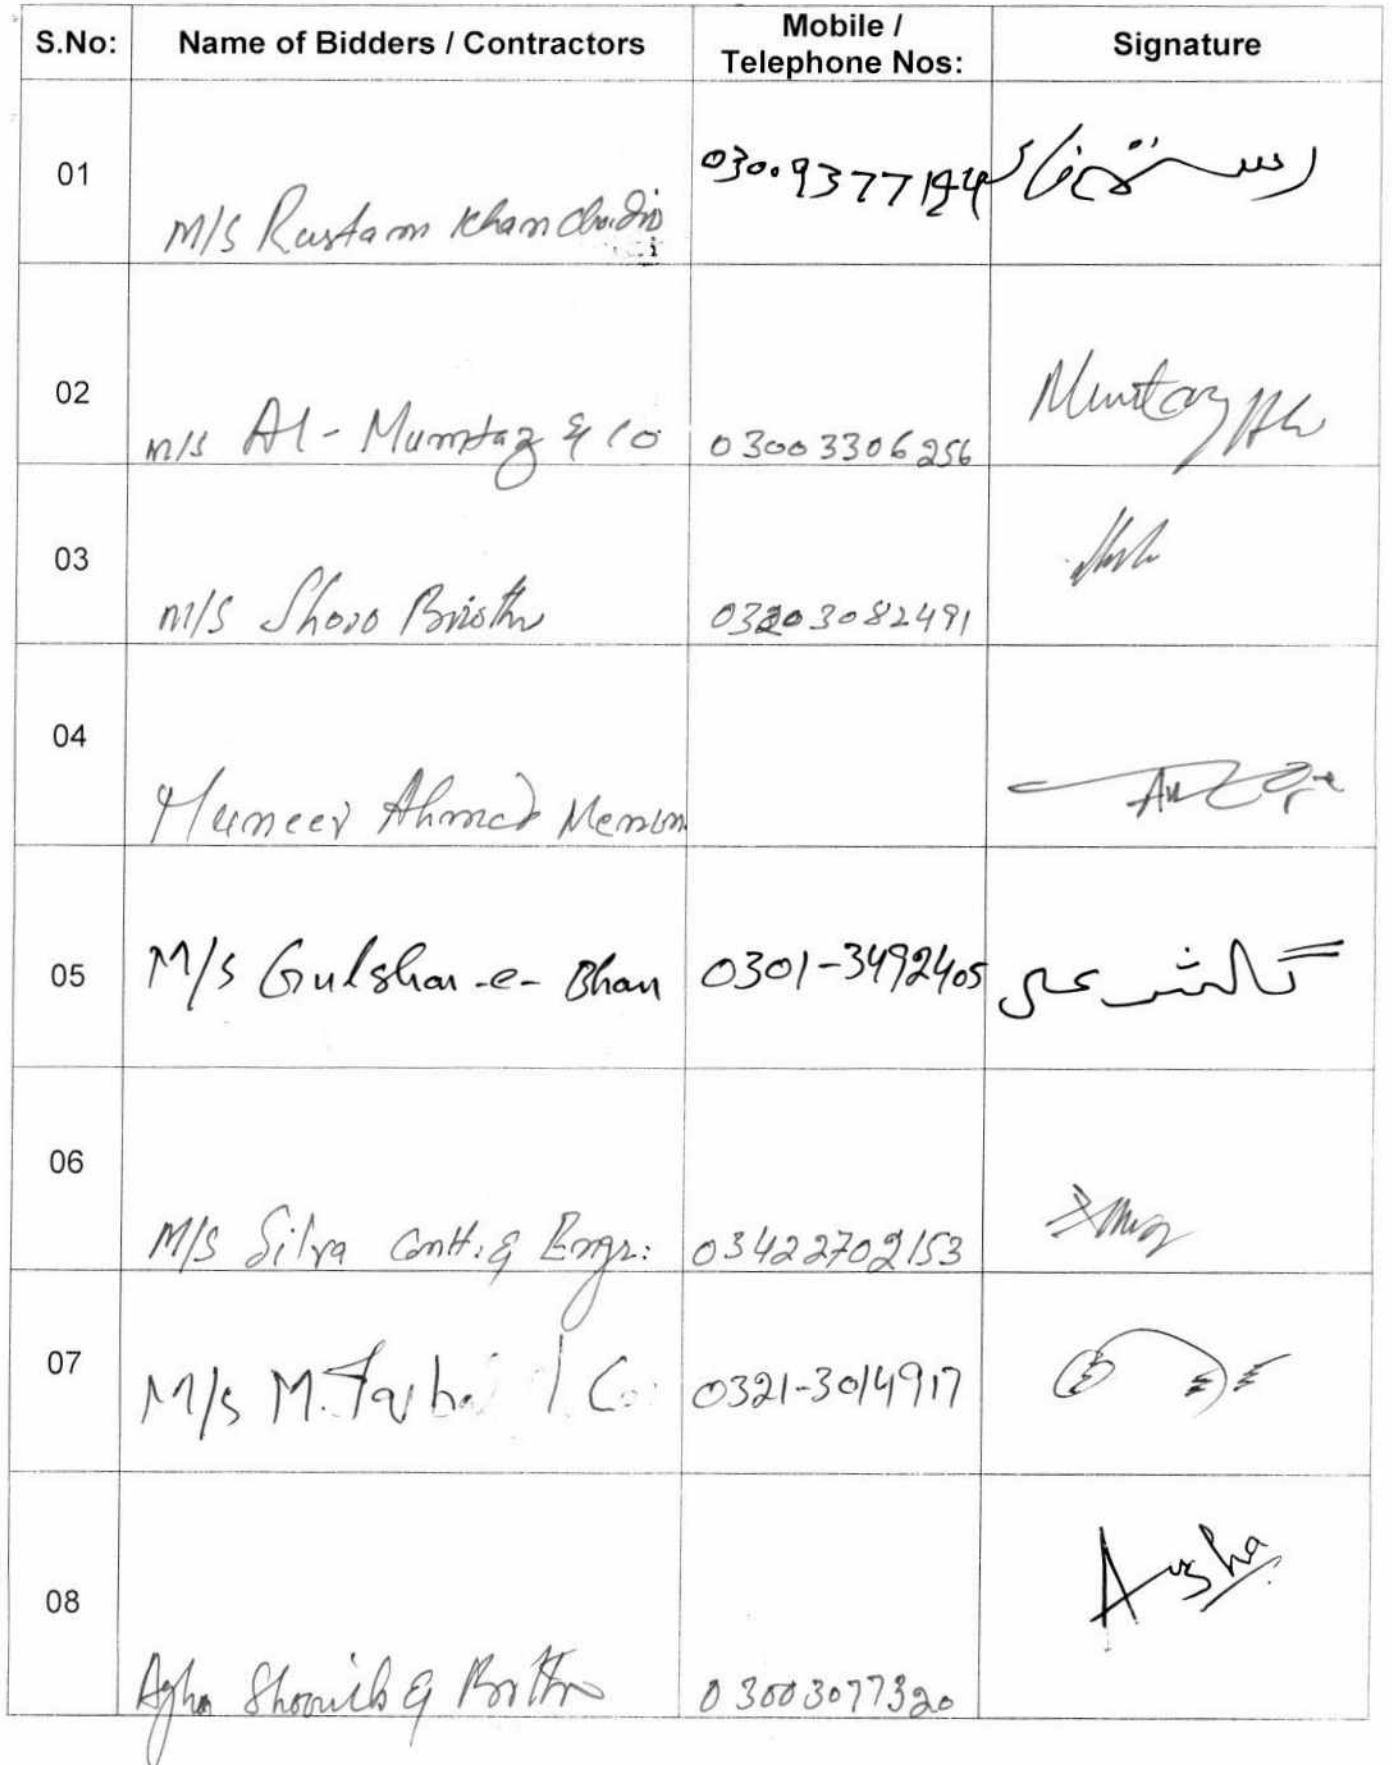 S.No: Name of Bidders / Contractors Mobile / Telephone Nos: Signature
01 M/S Rustam Khan 0300 9377194 رستم خان
02 M/S Al-Mumtaz & Co 03003306256 Mumtaz Ali
03 M/S Shoro 03203082491
04 Muneer Ahmed Memon
05 M/S Gulshan-e-Bhan 0301-3492405 گلشر علی
06 M/S Silva Contt: & Engr: 03422702153
07 M/S M. Co: 0321-3014917
08 Agha & 03003077320 Agha